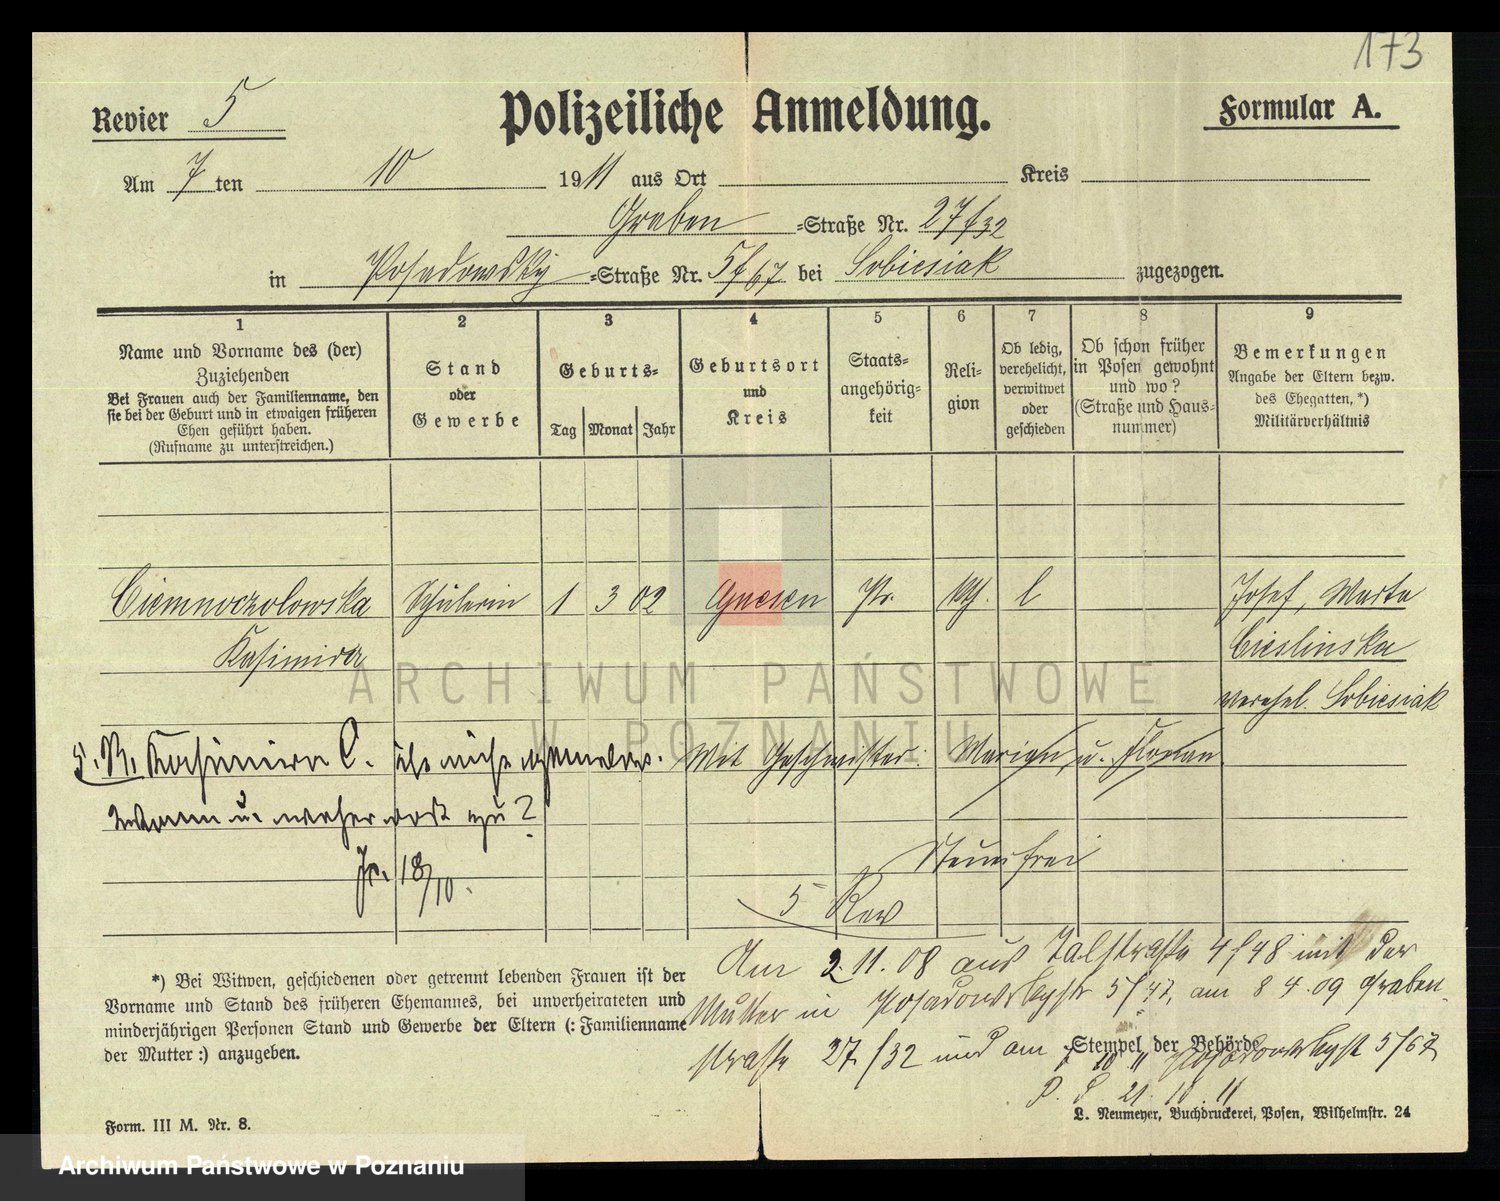 173
Revier 5
Polizeiliche Anmeldung.
Formular A.
Am 7 ten 10 1911 aus Ort Kreis
Graben =Straße Nr. 27/32
in Posadowsky =Straße Nr. 5/67 bei Sobiesiak zugezogen.
1 2 3 4 5 6 7 8 9
Name und Vorname des (der)
Zuziehenden
Bei Frauen auch der Familienname, den
sie bei der Geburt und in etwaigen früheren
Ehen geführt haben.
(Rufname zu unterstreichen.)
Stand
oder
Gewerbe
Geburts=
Tag Monat Jahr
Geburtsort
und
Kreis
Staats=
angehörig=
keit
Reli=
gion
Ob ledig,
verehelicht,
verwitwet
oder
geschieden
Ob schon früher
in Posen gewohnt
und wo?
(Straße und Haus=
nummer)
Bemerkungen
Angabe der Eltern bezw.
des Ehegatten,*)
Militärverhältnis
Ciemnoczolowska Schülerin 1 3 02 Gnesen Pr. kth. l Josef, Marta
Kasimira Cieslinska
verehel. Sobiesiak
ARCHIWUM PAŃSTWOWE
W POZNANIU
5. R. Kasimira C. ist nicht
Mit Geschwister: Marian u. Florian
wann u. woher dort zu?
Steuerfrei
18/10.
5 Rev
*) Bei Witwen, geschiedenen oder getrennt lebenden Frauen ist der
Vorname und Stand des früheren Ehemannes, bei unverheirateten und
minderjährigen Personen Stand und Gewerbe der Eltern (: Familienname
der Mutter :) anzugeben.
Am 2.11.08 aus Talstraße 4/48 mit der
Mutter in Posadowskystr 5/47, am 8 4.09 Graben
straße 27/32 und am 7 10 11 Posadowskyst 5/67
Stempel der Behörde
P. 21.10.11
Form. III M. Nr. 8.
L. Neumeyer, Buchdruckerei, Posen, Wilhelmstr. 24
Archiwum Państwowe w Poznaniu